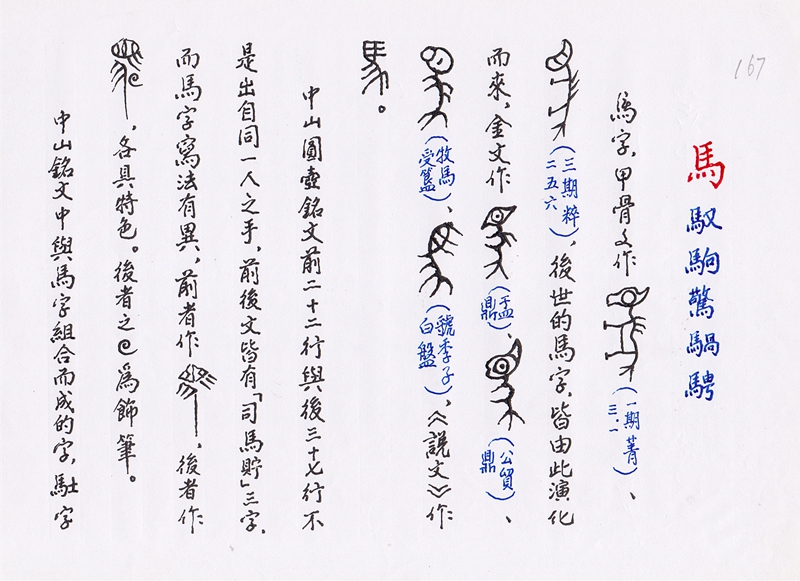 167
馬 馭駒驚騧騁
馬字，甲骨文作（一期菁三.一）、
（三期粹二五六），後世的馬字，皆由此演化
而來，金文作（盂鼎）、（公貿鼎）、
（牧馬受簋）、（虢季子白盤），《說文》作
。
中山圓壺銘文前二十二行與後三十七行不
是出自同一人之手，前後文皆有「司馬貯」三字，
而馬字寫法有異，前者作，後者作
，各具特色。後者之為飾筆。
中山銘文中與馬字組合而成的字，駐字